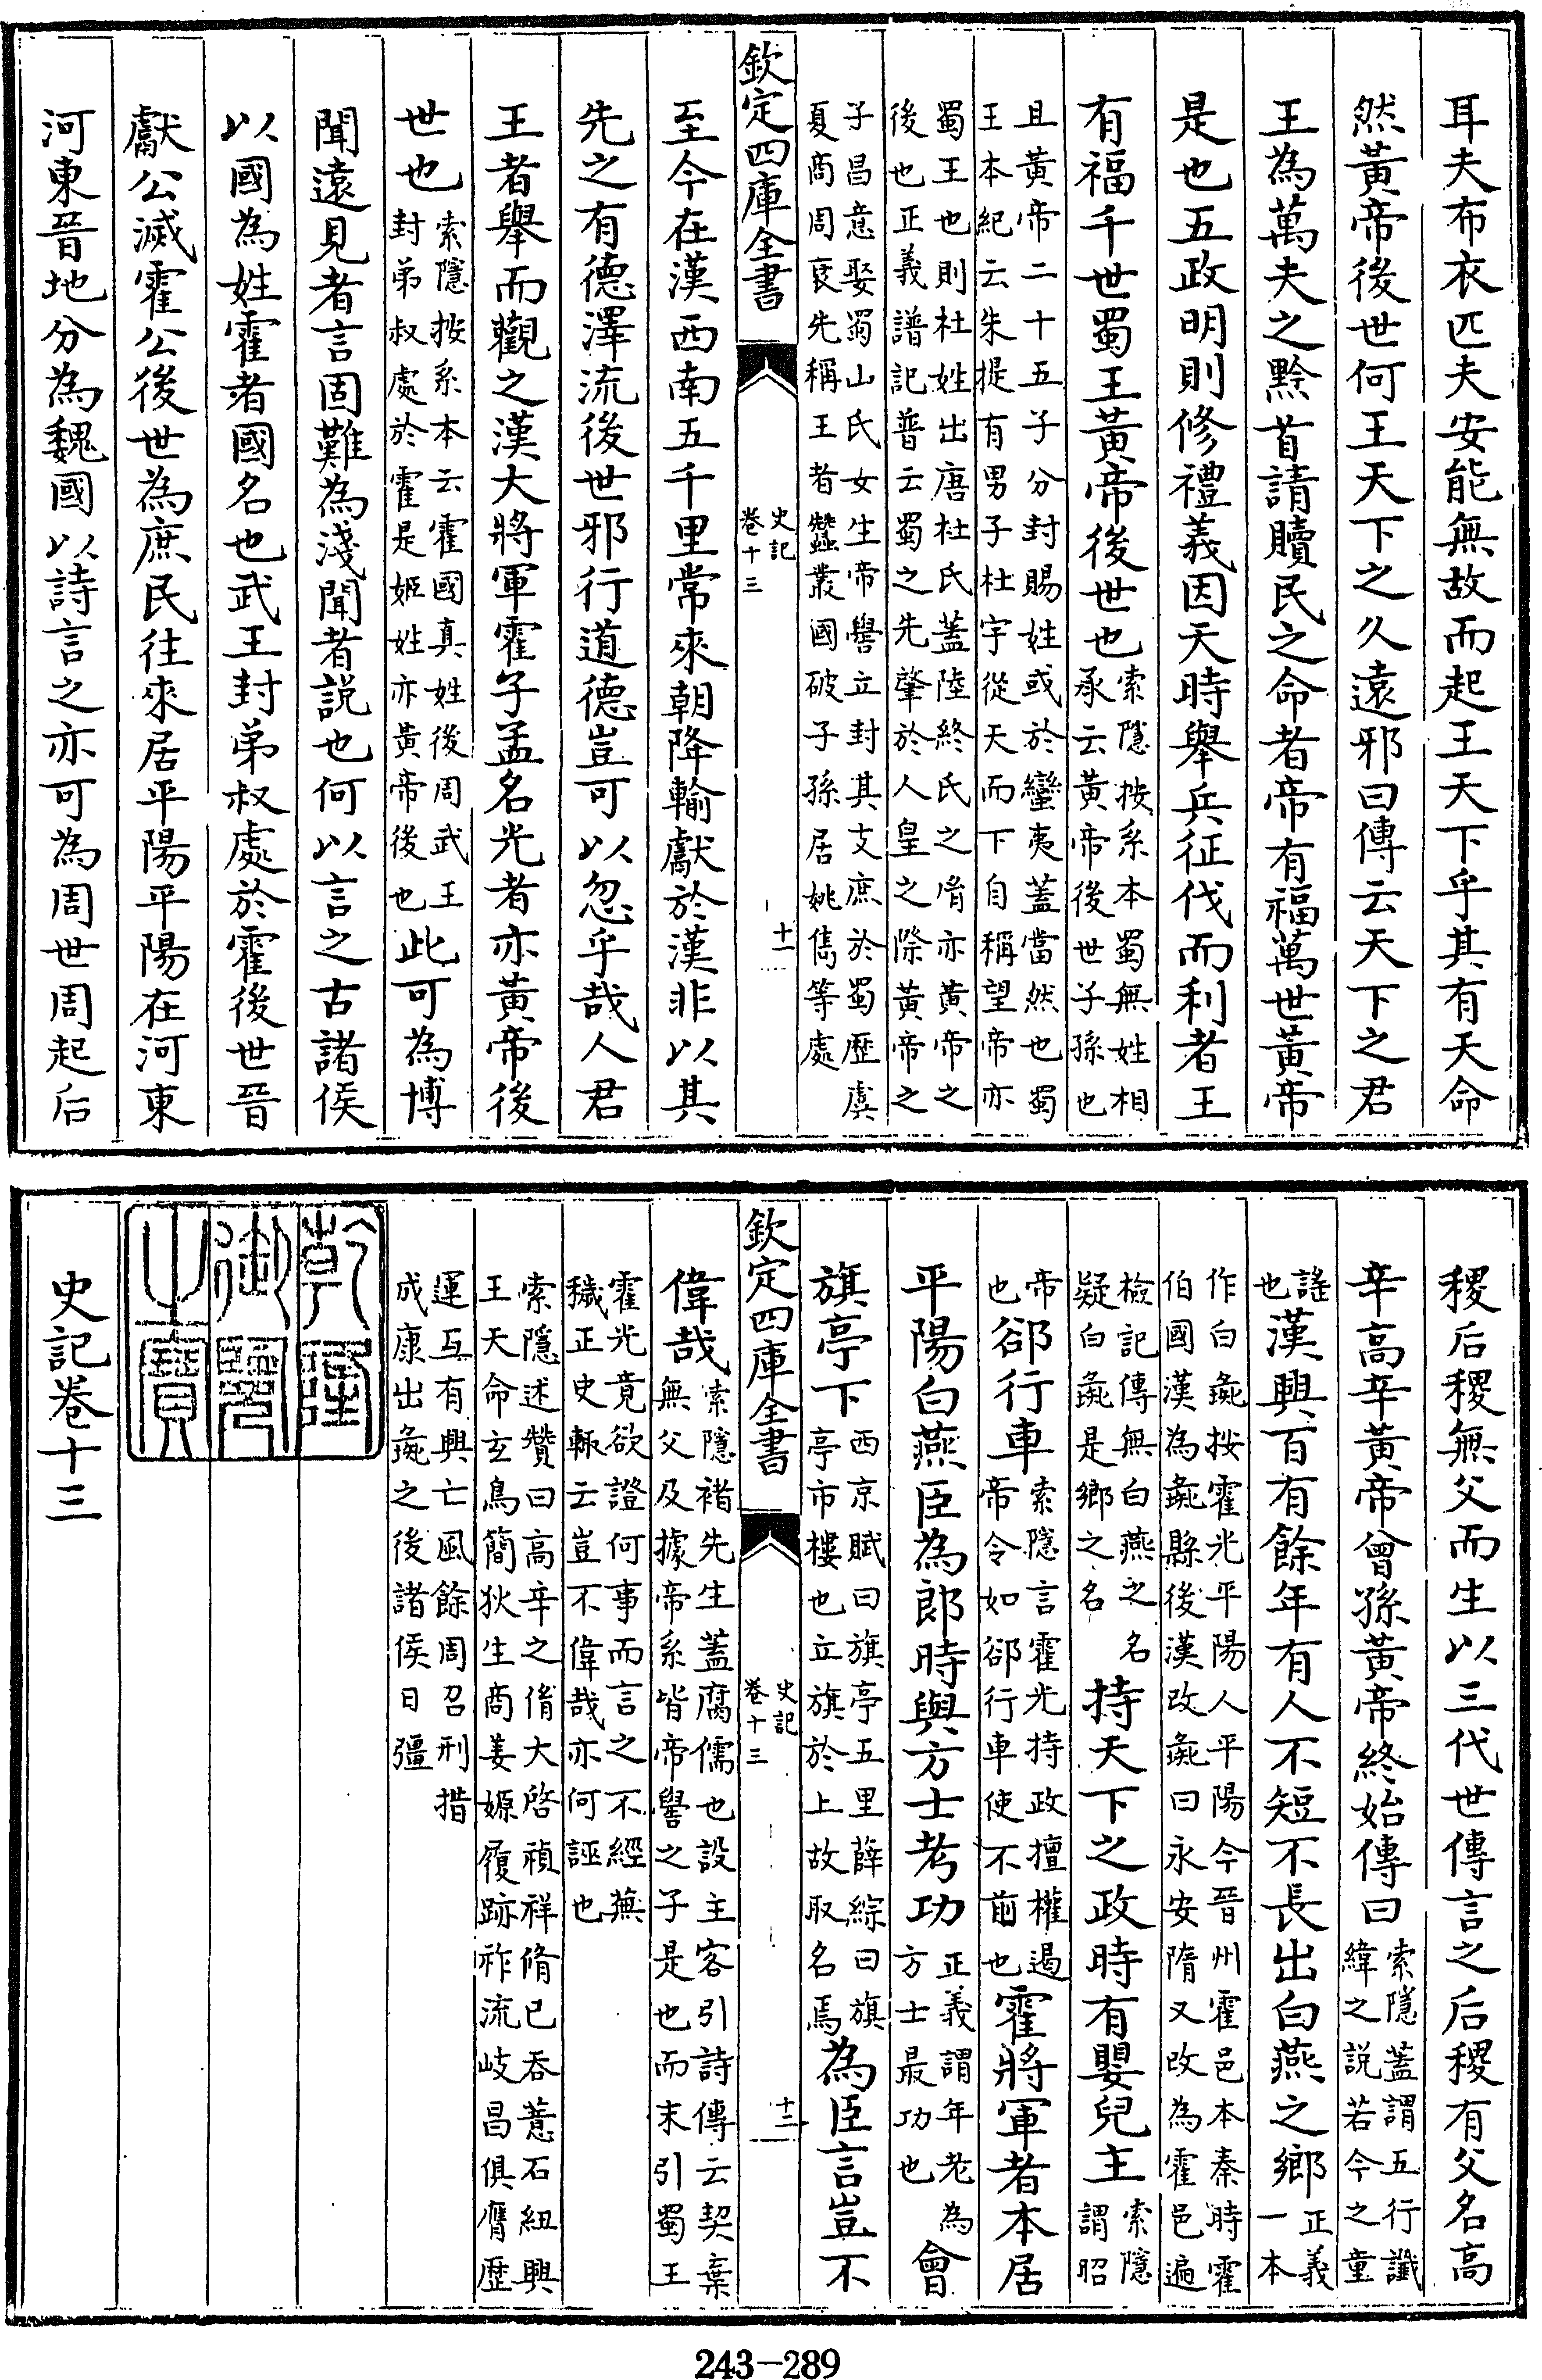 耳夫布衣匹夫安能無故而起王天下乎其有天命
然黃帝後世何王天下之久遠邪曰傳云天下之君
王為萬夫之黔首請贖民之命者帝有福萬世黃帝
是也五政明則修禮義因天時舉兵征伐而利者王
有福千世蜀王黃帝後世也索隱按系本蜀無姓相
承云黃帝後世子孫也
且黃帝二十五子分封賜姓或於蠻夷蓋當然也蜀
王本紀云朱提有男子杜宇從天而下自稱望帝亦
蜀王也則杜姓出唐杜氏蓋陸終氏之胤亦黃帝之
後也正義譜記普云蜀之先肇於人皇之際黃帝之
子昌意娶蜀山氏女生帝嚳立封其支庶於蜀歷虞
夏商周衰先稱王者蠶叢國破子孫居姚雋等處
欽定四庫全書
史記
卷十三
十一
至今在漢西南五千里常來朝降輸獻於漢非以其
先之有德澤流後世邪行道德豈可以忽乎哉人君
王者舉而觀之漢大將軍霍子孟名光者亦黃帝後
世也索隱按系本云霍國真姓後周武王
封弟叔處於霍是姬姓亦黃帝後也此可為博
聞遠見者言固難為淺聞者説也何以言之古諸侯
以國為姓霍者國名也武王封弟叔處於霍後世晉
獻公滅霍公後世為庶民往來居平陽平陽在河東
河東晉地分為魏國以詩言之亦可為周世周起后
稷后稷無父而生以三代世傳言之后稷有父名高
辛高辛黃帝曾孫黃帝終始傳曰索隱蓋謂五行讖
緯之説若今之童
謠
也漢興百有餘年有人不短不長出白燕之鄉正義
一本
作白彘按霍光平陽人平陽今晉州霍邑本秦時霍
伯國漢為彘縣後漢改彘曰永安隋又改為霍邑遍
檢記傳無白燕之名
疑白彘是鄉之名持天下之政時有嬰兒主索隱
謂昭
帝
也郤行車索隱言霍光持政擅權遏
帝令如郤行車使不前也霍將軍者本居
平陽白燕臣為郎時與方士考功正義謂年老為
方士最功也會
旗亭下西京賦曰旗亭五里薛綜曰旗
亭市樓也立旗於上故取名焉為臣言豈不
欽定四庫全書
史記
卷十三
十二
偉哉索隱褚先生蓋腐儒也設主客引詩傳云契棄
無父及據帝系皆帝嚳之子是也而末引蜀王
霍光竟欲證何事而言之不經蕪
穢正史輒云豈不偉哉亦何誣也
索隱述贊曰高辛之胤大啓禎祥脩已吞薏石紐興
王天命玄鳥簡狄生商姜嫄履跡祚流岐昌俱膺歷
運互有興亡風餘周召刑措
成康出彘之後諸侯日彊
乾隆
御覽
之寶
史記卷十三
243-289